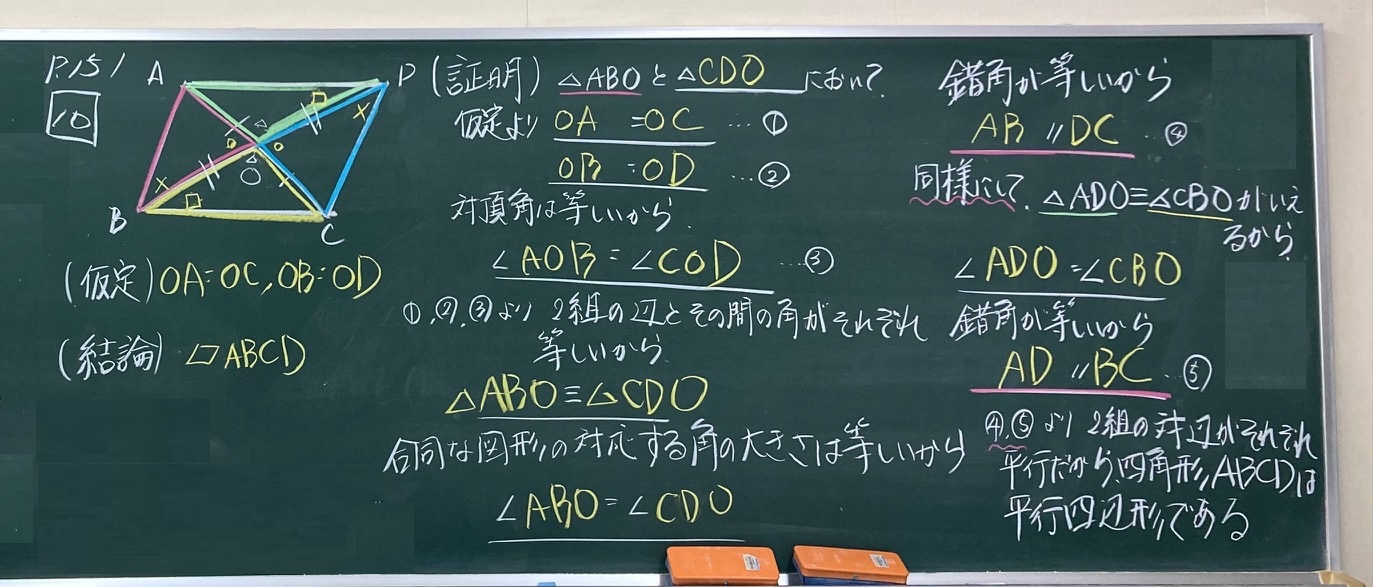 P.151
10
A
D
O
B
C
(仮定) OA=OC, OB=OD
(結論) ▱ABCD
(証明) △ABOと△CDOにおいて
仮定より OA=OC …①
OB=OD …②
対頂角は等しいから
∠AOB=∠COD …③
①,②,③より 2組の辺とその間の角がそれぞれ
等しいから
△ABO≡△CDO
合同な図形の対応する角の大きさは等しいから
∠ABO=∠CDO
錯角が等しいから
AB//DC …④
同様にして、△ADO≡△CBOがいえ
るから
∠ADO=∠CBO
錯角が等しいから
AD//BC …⑤
④,⑤より 2組の対辺がそれぞれ
平行だから、四角形ABCDは
平行四辺形である